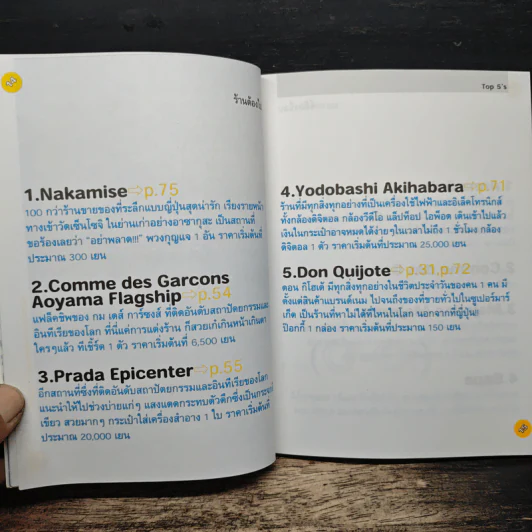 ร้านต้อง
1.Nakamise⇨p.75
100 กว่าร้านขายของที่ระลึกแบบญี่ปุ่นสุดน่ารัก เรียงรายหน้า
ทางเข้าวัดเซ็นโซจิ ในย่านเก่าอย่างอาซากุสะ เป็นสถานที่
ขอร้องเลยว่า "อย่าพลาด!!!" พวงกุญแจ 1 อัน ราคาเริ่มต้นที่
ประมาณ 300 เยน
2.Comme des Garcons
Aoyama Flagship⇨p.54
แฟล็คชิพของ กม เดส์ การ์ซงส์ ที่ติดอันดับสถาปัตยกรรมและ
อินทีเรียของโลก ที่นี่แค่การแต่งร้าน ก็สวยเก๋เกินหน้าเกินตา
ใครๆแล้ว ทีเชิ้ร์ต 1 ตัว ราคาเริ่มต้นที่ 6,500 เยน
3.Prada Epicenter⇨p.55
อีกสถานที่ซึ่งที่ติดอันดับสถาปัตยกรรมและอินทีเรียของโลก
แนะนำให้ไปช่วงบ่ายแก่ๆ แสงแดดกระทบตัวตึกซึ่งเป็นกระจก
เขียว สวยมากๆ กระเป๋าใส่เครื่องสำอาง 1 ใบ ราคาเริ่มต้นที่
ประมาณ 20,000 เยน
Top 5's
4.Yodobashi Akihabara⇨p.71
ร้านที่มีทุกสิ่งทุกอย่างที่เป็นเครื่องใช้ไฟฟ้าและอิเล็คโทรนิกส์
ทั้งกล้องดิจิตอล กล้องวีดีโอ แล็ปท็อป ไอพ็อด เดินเข้าไปแล้ว
เงินในกระเป๋าอาจหมดได้ง่ายๆในเวลาไม่ถึง 1 ชั่วโมง กล้อง
ดิจิตอล 1 ตัว ราคาเริ่มต้นที่ประมาณ 25,000 เยน
5.Don Quijote⇨p.31,p.72
ดอน กิโฮเต้ มีทุกสิ่งทุกอย่างในชีวิตประจำวันของคน 1 คน มี
ตั้งแต่สินค้าแบรนด์เนม ไปจนถึงของที่ขายทั่วไปในซูเปอร์มาร์
เก็ต เป็นร้านที่หาไม่ได้ที่ไหนในโลก นอกจากที่ญี่ปุ่น!!
ป๊อกกี้ 1 กล่อง ราคาเริ่มต้นที่ประมาณ 150 เยน